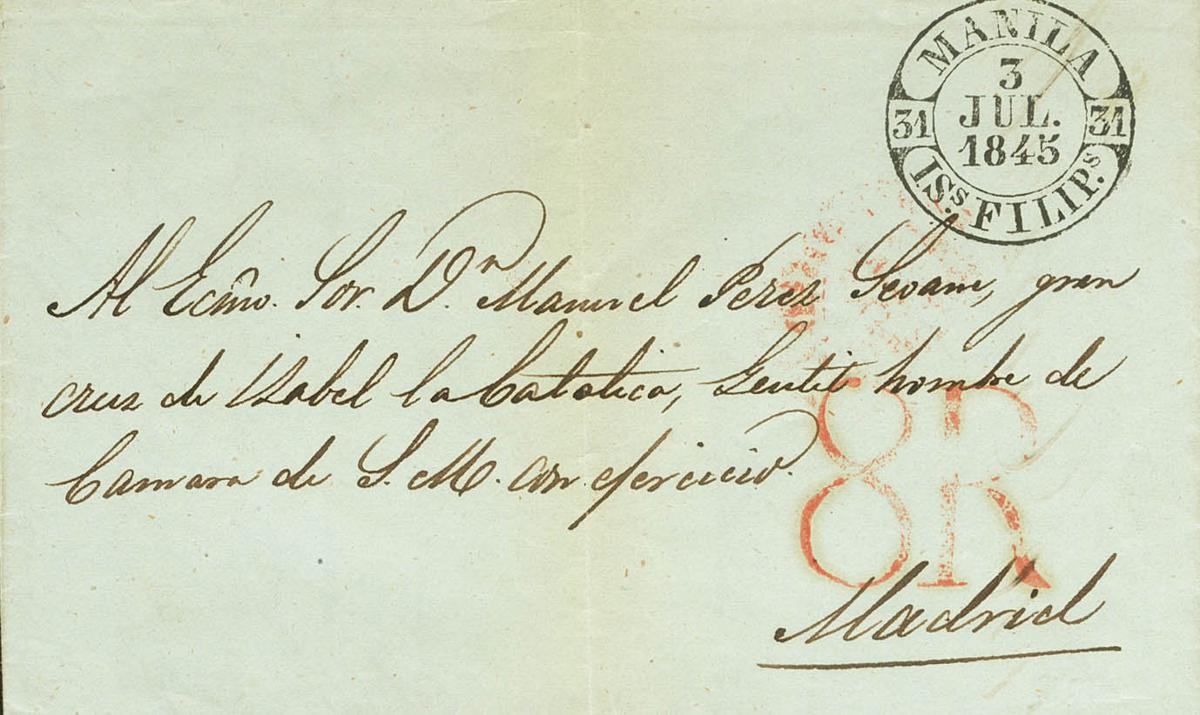 MANILA
3
JUL.
1845
31 31
ISs. FILIP.s
Al Ecmo. Sor. Dn. Manuel Perez Seoane, gran
cruz de Isabel la Catolica, Gentil hombre de
Camara de S. M. con ejercicio.
8R
Madrid